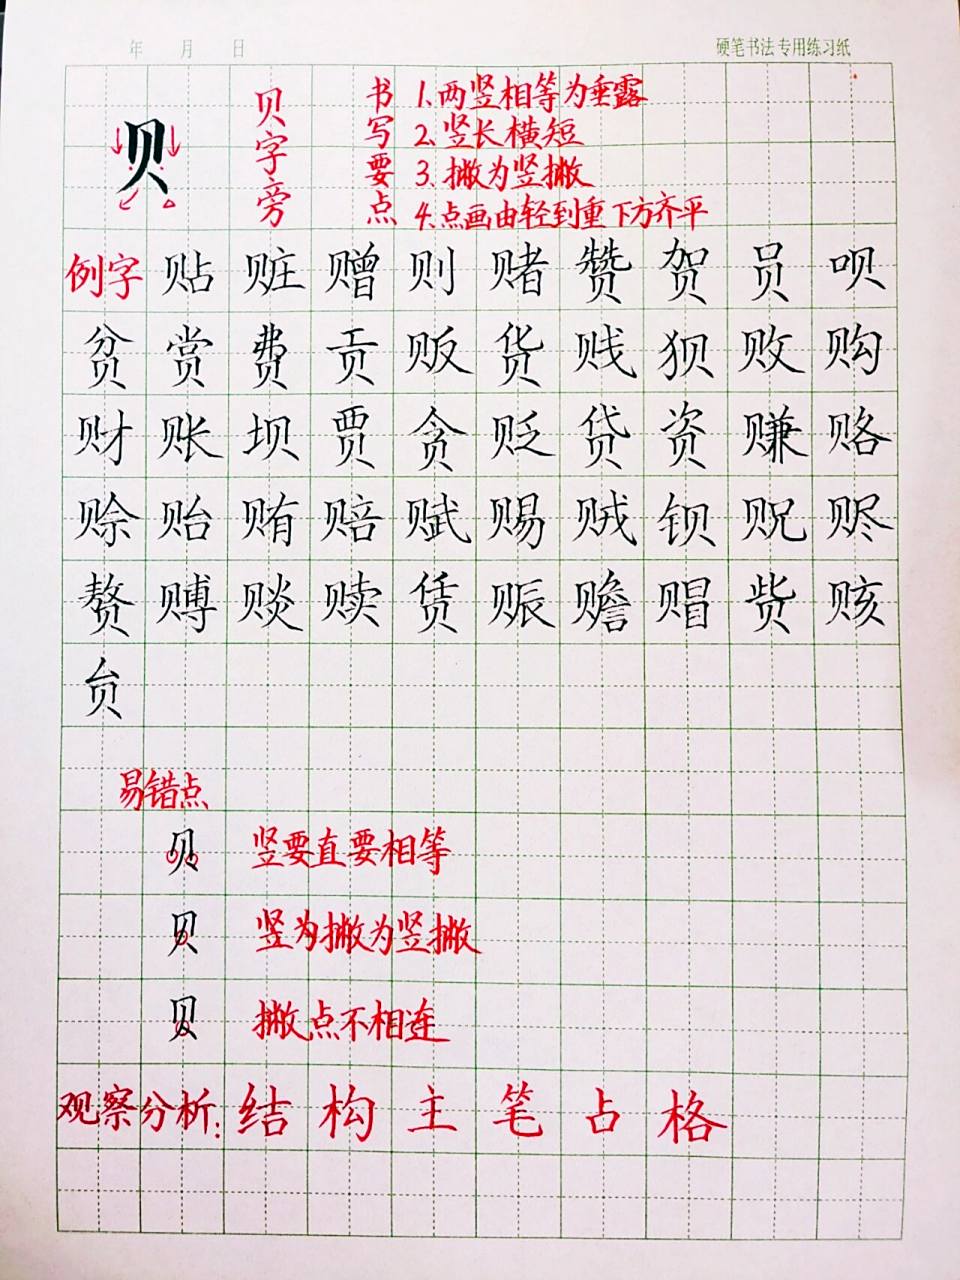 年 月 日 硬笔书法专用练习纸
贝
贝字旁
书写要点
1.两竖相等为垂露
2.竖长横短
3.撇为竖撇
4.点画由轻到重下方齐平
例字 贴 赃 赠 则 赌 赞 贺 员 呗
贫 赏 费 贡 贩 货 贱 狈 败 购
财 账 坝 贾 贪 贬 贷 资 赚 赂
赊 贻 贿 赔 赋 赐 贼 钡 贶 赆
赘 赙 赕 赎 赁 赈 赡 赗 赀 赅
贠
易错点
贝 竖要直要相等
贝 竖为撇为竖撇
贝 撇点不相连
观察分析: 结构主笔占格